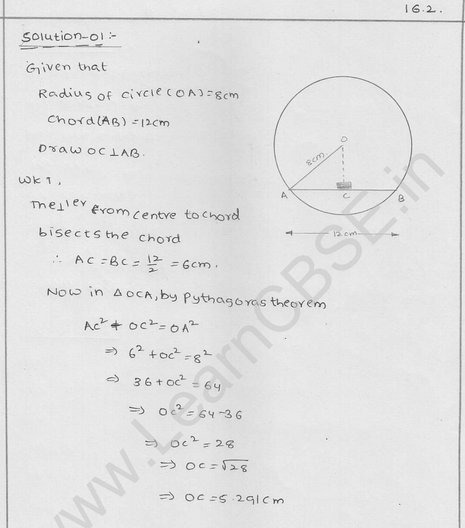 16.2.
Solution-01:-
Given that
Radius of circle (OA)=8cm
Chord(AB)=12cm
Draw OC⊥AB.
WKT,
The ⊥ler from centre to chord
bisects the chord
∴ AC=BC=12/2=6cm.
Now in △OCA, by Pythagoras theorem
AC²+OC²=OA²
⇒ 6²+OC²=8²
⇒ 36+OC²=64
⇒ OC²=64-36
⇒ OC²=28
⇒ OC=√28
⇒ OC=5.291cm
O
8cm
A
C
B
12cm
www.LearnCBSE.in